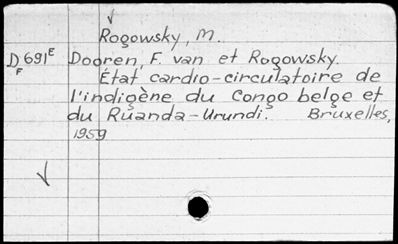 Rogowsky, M.
D 691E Dooren, F. van et Rogowsky.
F
État cardio-circulatoire de
l'indigène du Congo belge et
du Ruanda-Urundi. Bruxelles,
1959